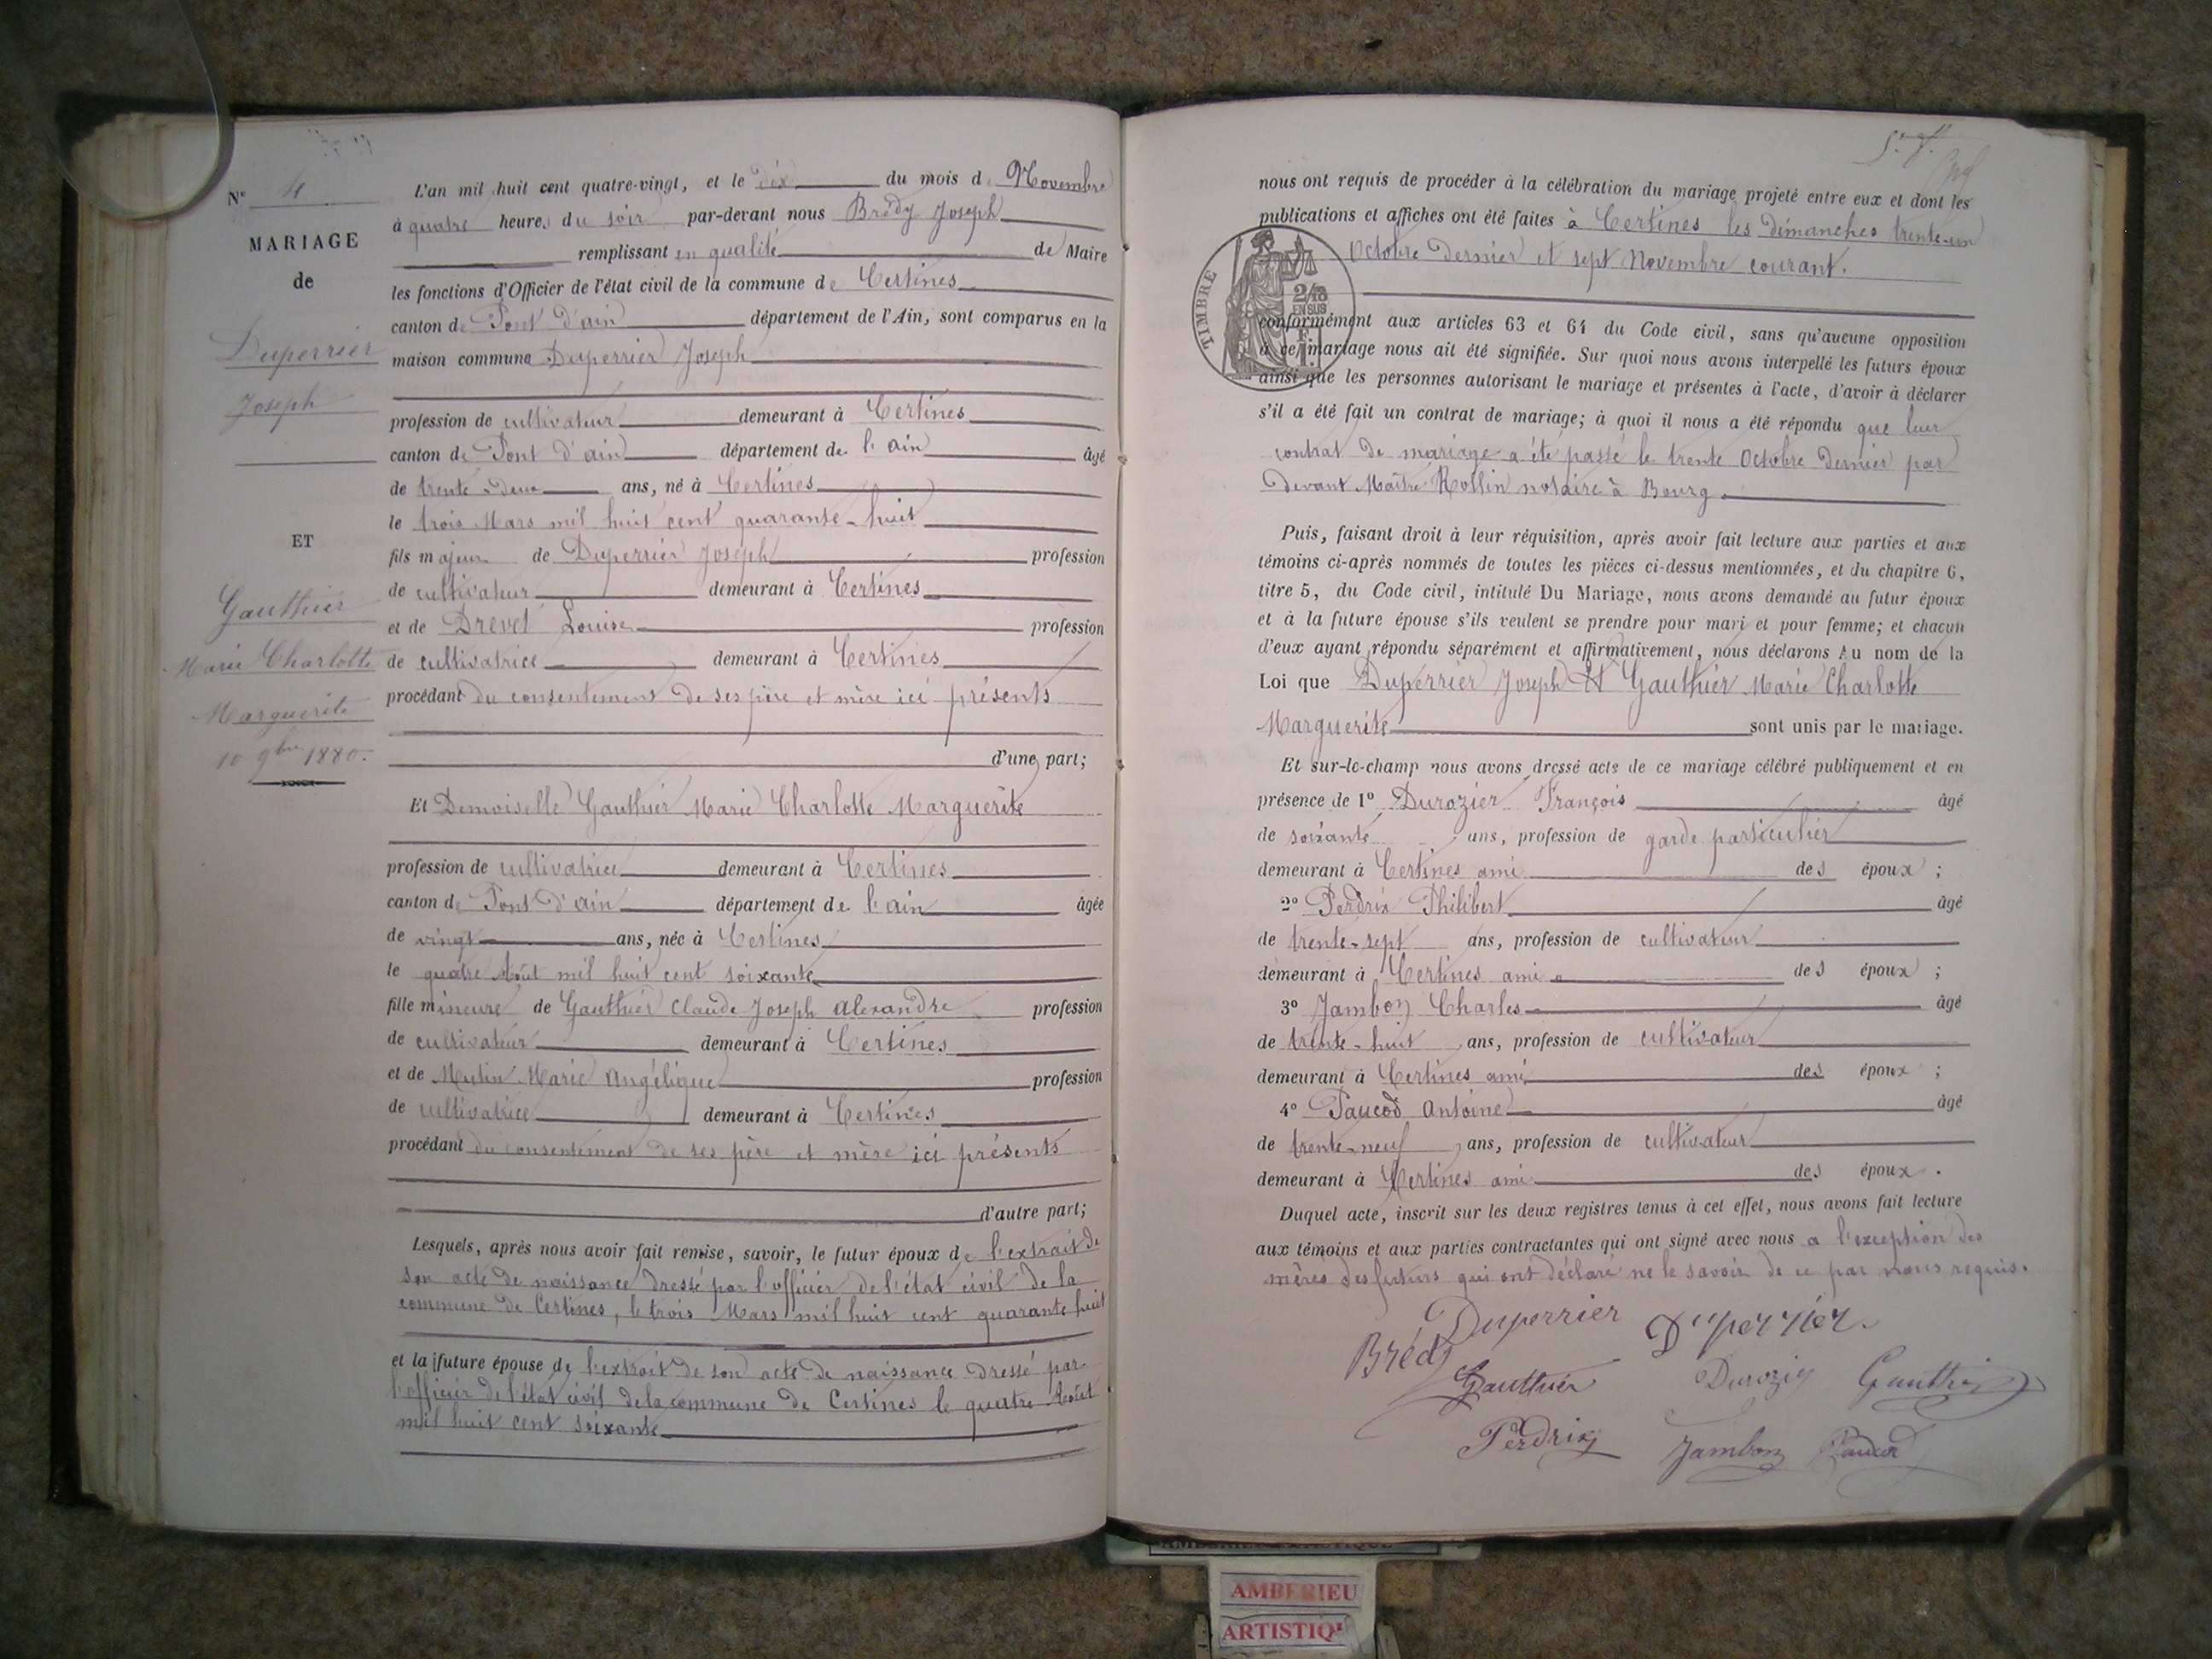 N° 4
MARIAGE
de
Duperrier
Joseph
ET
Gauthier
Marie Charlotte
Marguerite
10 9bre 1880.
L'an mil huit cent quatre-vingt, et le dix du mois de Novembre
à quatre heures du soir par-devant nous Brédy Joseph
remplissant en qualité de Maire
les fonctions d'Officier de l'état civil de la commune de Certines
canton de Pont d'ain département de l'Ain, sont comparus en la
maison commune Duperrier Joseph
profession de cultivateur demeurant à Certines
canton de Pont d'ain département de l'ain âgé
de trente-deux ans, né à Certines
le trois Mars mil huit cent quarante-huit
fils majeur de Duperrier Joseph profession
de cultivateur demeurant à Certines
et de Drevet Louise profession
de cultivatrice demeurant à Certines
procédant du consentement de ses père et mère ici présents
d'une part;
Et Demoiselle Gauthier Marie Charlotte Marguerite
profession de cultivatrice demeurant à Certines
canton de Pont d'ain département de l'ain âgée
de vingt ans, née à Certines
le quatre Août mil huit cent soixante
fille mineure de Gauthier Claude Joseph Alexandre profession
de cultivateur demeurant à Certines
et de Marie Angélique profession
de cultivatrice demeurant à Certines
procédant du consentement de ses père et mère ici présents
d'autre part;
Lesquels, après nous avoir fait remise, savoir, le futur époux de l'extrait de
son acte de naissance dressé par l'officier de l'état civil de la
commune de Certines, le trois Mars mil huit cent quarante huit
et la future épouse de l'extrait de son acte de naissance dressé par
l'officier de l'état civil de la commune de Certines le quatre Août
mil huit cent soixante
nous ont requis de procéder à la célébration du mariage projeté entre eux et dont les
publications et affiches ont été faites à Certines les dimanches trente-un
Octobre dernier et sept Novembre courant.
TIMBRE
2/10
EN SUS
conformément aux articles 63 et 64 du Code civil, sans qu'aucune opposition
à ce mariage nous ait été signifiée. Sur quoi nous avons interpellé les futurs époux
ainsi que les personnes autorisant le mariage et présentes à l'acte, d'avoir à déclarer
s'il a été fait un contrat de mariage; à quoi il nous a été répondu que leur
contrat de mariage a été passé le trente Octobre dernier par
devant Maître Rollin notaire à Bourg.
Puis, faisant droit à leur réquisition, après avoir fait lecture aux parties et aux
témoins ci-après nommés de toutes les pièces ci-dessus mentionnées, et du chapitre 6,
titre 5, du Code civil, intitulé Du Mariage, nous avons demandé au futur époux
et à la future épouse s'ils veulent se prendre pour mari et pour femme; et chacun
d'eux ayant répondu séparément et affirmativement, nous déclarons Au nom de la
Loi que Duperrier Joseph Et Gauthier Marie Charlotte
Marguerite sont unis par le mariage.
Et sur-le-champ nous avons dressé acte de ce mariage célébré publiquement et en
présence de 1° Durozier François âgé
de soixante ans, profession de garde particulier
demeurant à Certines ami des époux ;
2° Perdrix Philibert âgé
de trente-sept ans, profession de cultivateur
demeurant à Certines ami des époux ;
3° Jambon Charles âgé
de trente-huit ans, profession de cultivateur
demeurant à Certines ami des époux ;
4° Paucod Antoine âgé
de trente-neuf ans, profession de cultivateur
demeurant à Certines ami des époux.
Duquel acte, inscrit sur les deux registres tenus à cet effet, nous avons fait lecture
aux témoins et aux parties contractantes qui ont signé avec nous a l'exception des
mères des futurs qui ont déclaré ne le savoir de ce par nous requis.
Duperrier Duperrier.
Brédy
Gauthier Durozier Gauthier
Perdrix Jambon Paucod
AMBERIEU
ARTISTIQ